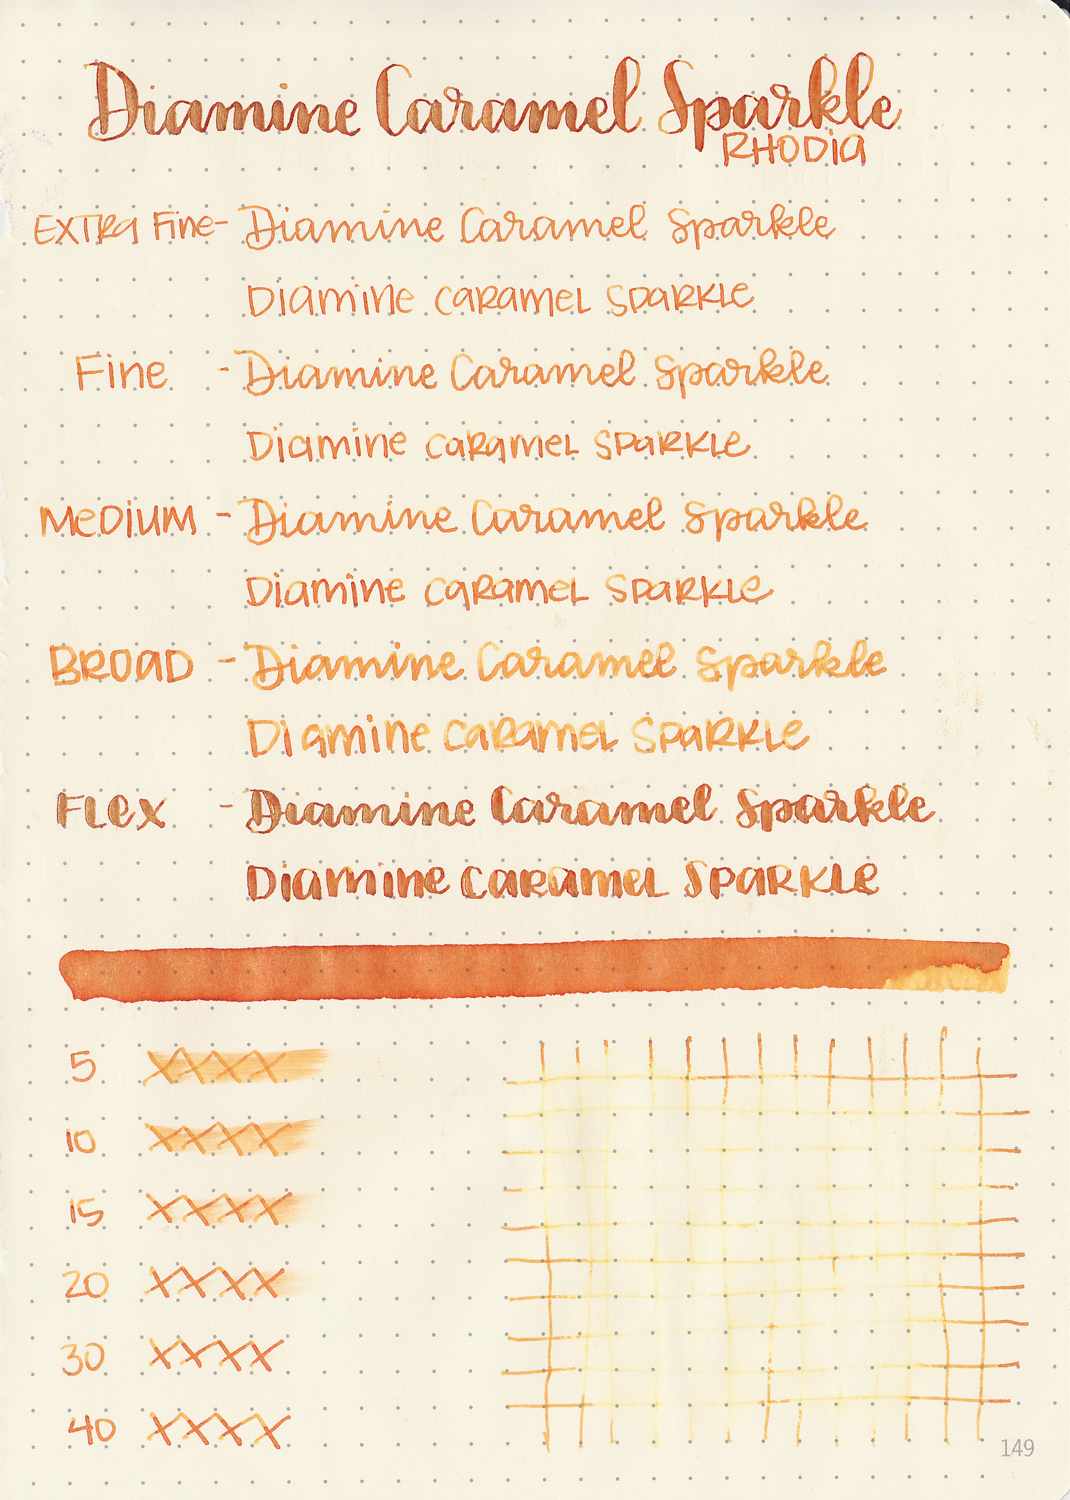 Diamine Caramel Sparkle
RHODIA
EXTRA Fine - Diamine Caramel Sparkle
Diamine CARAMEL SPARKLE
Fine - Diamine Caramel Sparkle
Diamine CARAMEL SPARKLE
MeDiUM - Diamine Caramel Sparkle
Diamine CARAMEL SPARKLE
BROAD - Diamine Caramel Sparkle
Diamine CARAMEL SPARKLE
FLex - Diamine Caramel Sparkle
Diamine CARAMEL SPARKLE
5 XXXX
10 XXXX
15 XXXX
20 XXXX
30 XXXX
40 XXXX
149